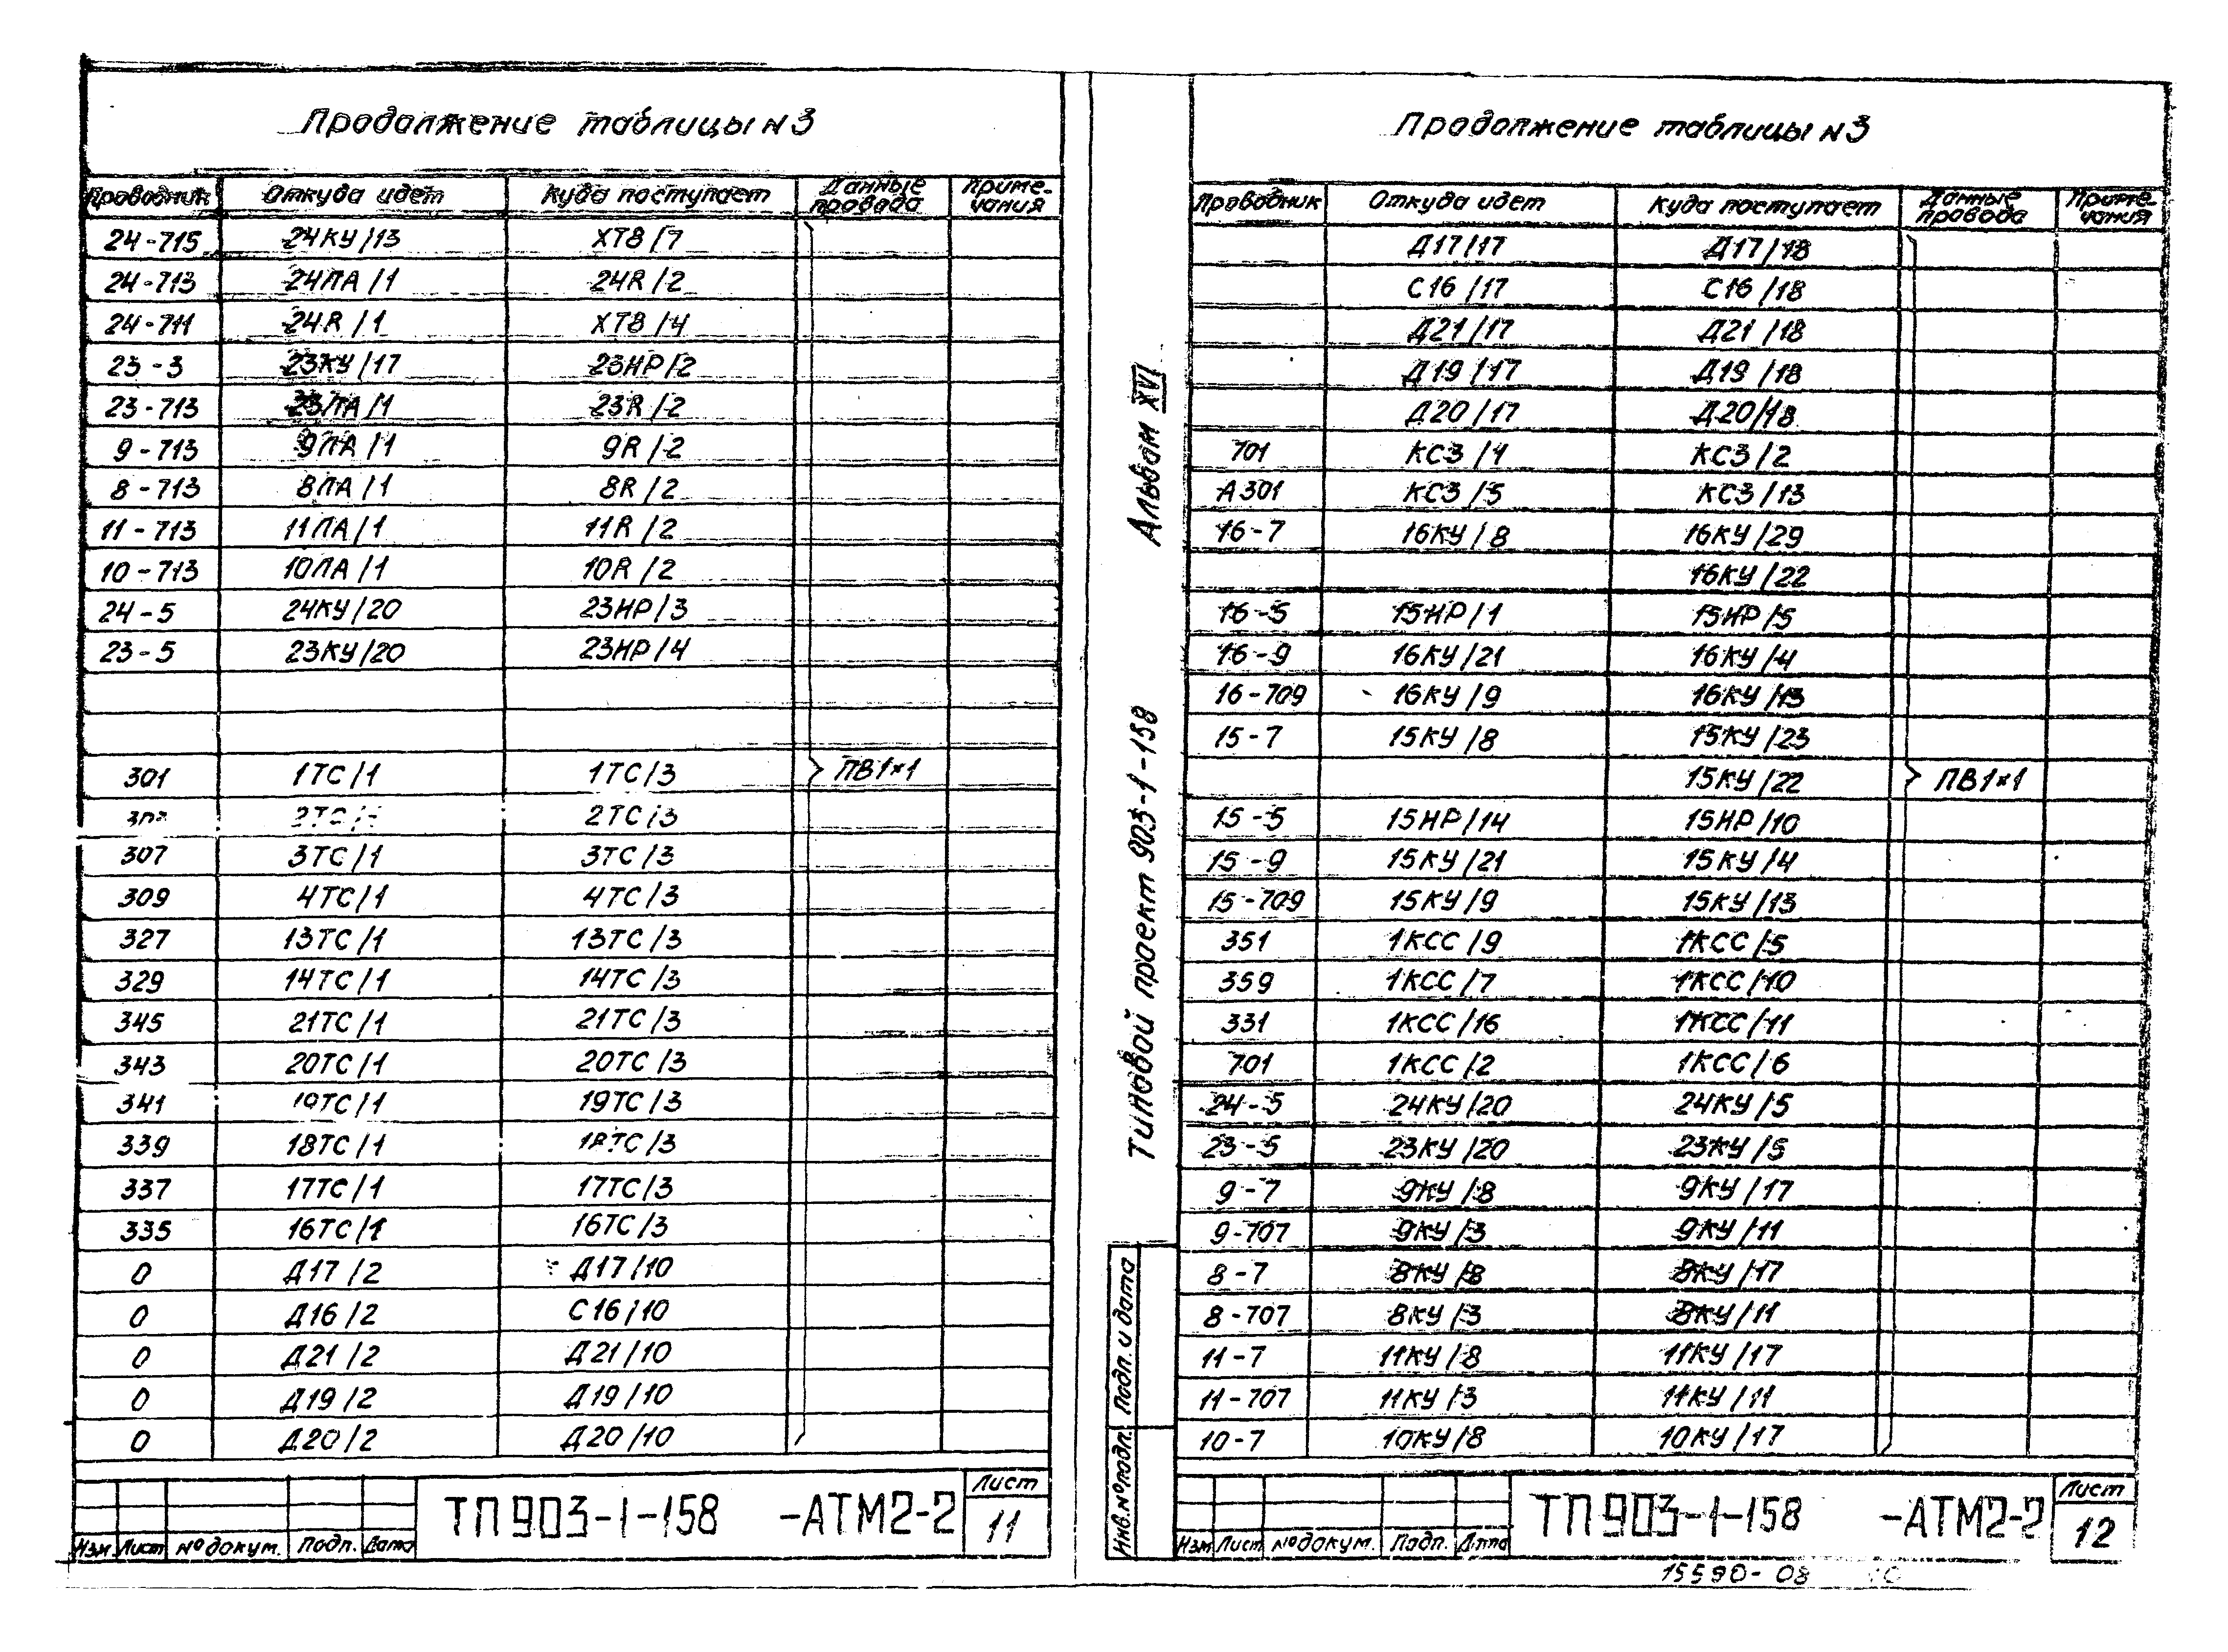 Продолжение таблицы N3
Проводник Откуда идет Куда поступает Данные провода Приме-чания
24-715 24КУ/13 ХТ8/7
24-713 24ЛА/1 24R/2
24-711 24R/1 ХТ8/4
23-3 23КУ/17 23НР/2
23-713 23ЛА/1 23R/2
9-713 9ЛА/1 9R/2
8-713 8ЛА/1 8R/2
11-713 11ЛА/1 11R/2
10-713 10ЛА/1 10R/2
24-5 24КУ/20 23НР/3
23-5 23КУ/20 23НР/4
301 1ТС/1 1ТС/3 ПВ1×1
2ТС/3
307 3ТС/1 3ТС/3
309 4ТС/1 4ТС/3
327 13ТС/1 13ТС/3
329 14ТС/1 14ТС/3
345 21ТС/1 21ТС/3
343 20ТС/1 20ТС/3
341 19ТС/1 19ТС/3
339 18ТС/1 18ТС/3
337 17ТС/1 17ТС/3
335 16ТС/1 16ТС/3
0 Д17/2 Д17/10
0 Д16/2 С16/10
0 Д21/2 Д21/10
0 Д19/2 Д19/10
0 Д20/2 Д20/10
Изм Лист № докум. Подп. Дата
ТП 903-1-158 -АТМ2-2
Лист
11
Альбом XVI
Типовой проект 903-1-158
Инв.№подл. Подп. и дата
Продолжение таблицы N3
Проводник Откуда идет Куда поступает Данные провода Приме-чания
Д17/17 Д17/18
С16/17 С16/18
Д21/17 Д21/18
Д19/17 Д19/18
Д20/17 Д20/18
701 КС3/1 КС3/2
А301 КС3/5 КС3/13
16-7 16КУ/8 16КУ/29
16КУ/22
16-5 15НР/1 15НР/5
16-9 16КУ/21 16КУ/4
16-709 16КУ/9 16КУ/13
15-7 15КУ/8 15КУ/23
15КУ/22 ПВ1×1
15-5 15НР/14 15НР/10
15-9 15КУ/21 15КУ/4
15-709 15КУ/9 15КУ/13
351 1КСС/9 1КСС/5
359 1КСС/7 1КСС/10
331 1КСС/16 1КСС/11
701 1КСС/2 1КСС/6
24-5 24КУ/20 24КУ/5
23-5 23КУ/20 23КУ/5
9-7 9КУ/8 9КУ/17
9-707 9КУ/3 9КУ/11
8-7 8КУ/8 8КУ/17
8-707 8КУ/3 8КУ/11
11-7 11КУ/8 11КУ/17
11-707 11КУ/3 11КУ/11
10-7 10КУ/8 10КУ/17
Изм Лист № докум. Подп. Дата
ТП 903-1-158 -АТМ2-2
Лист
12
15590-08